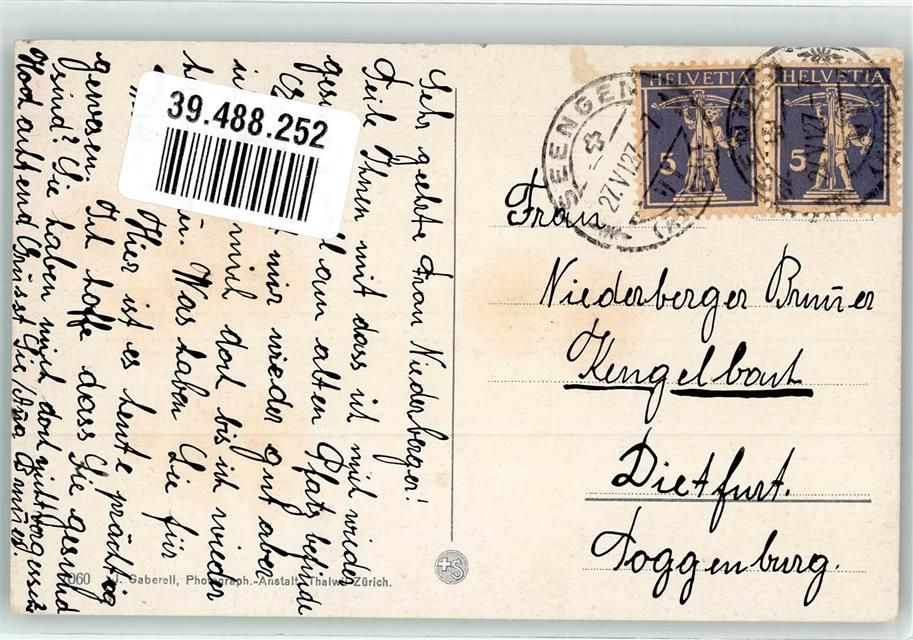 39.488.252
HELVETIA
5
HELVETIA
5
SEENGEN
27.VI.27
Sehr geehrte Frau Niederberger!
Teile Ihnen mit dass ich mich wieder
am alten Platz befinde
mir wieder gut aber
mich dort bis ich wieder
Was haben Sie für
Hier ist es heute prächtig
gewesen. Ich hoffe dass Sie gesund
sind? Sie haben mich dort nicht vergessen
Hochachtend Grüsst Sie
Frau
Niederberger Brunner
Kengelbach
Dietfurt.
Toggenburg.
J. Gaberell, Photograph.-Anstalt, Thalwil-Zürich.